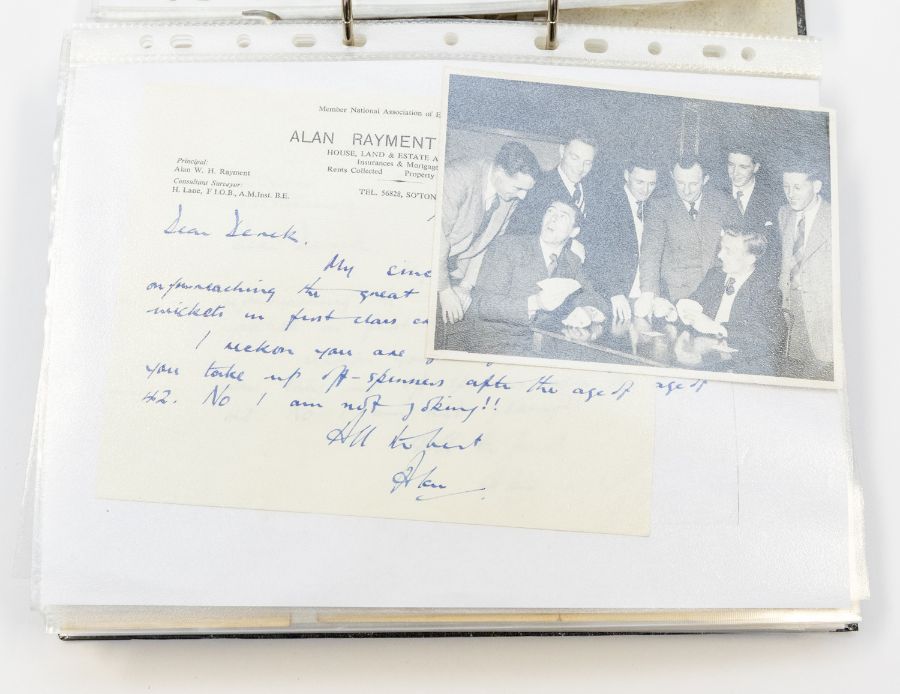 Member National Association of E
ALAN RAYMENT
HOUSE, LAND & ESTATE A
Insurances & Mortgag
Rents Collected Property
TEL. 56828, SO'TON
Principal:
Alan W. H. Rayment
Consultant Surveyor:
H. Lane, F.I.O.B., A.M.Inst. B.E.
Dear Derek,
My since
on your reaching the great
wickets in first class
I reckon you are
you take up off-spinners after the age of age of
42. No I am not joking!!
All the best
Alan